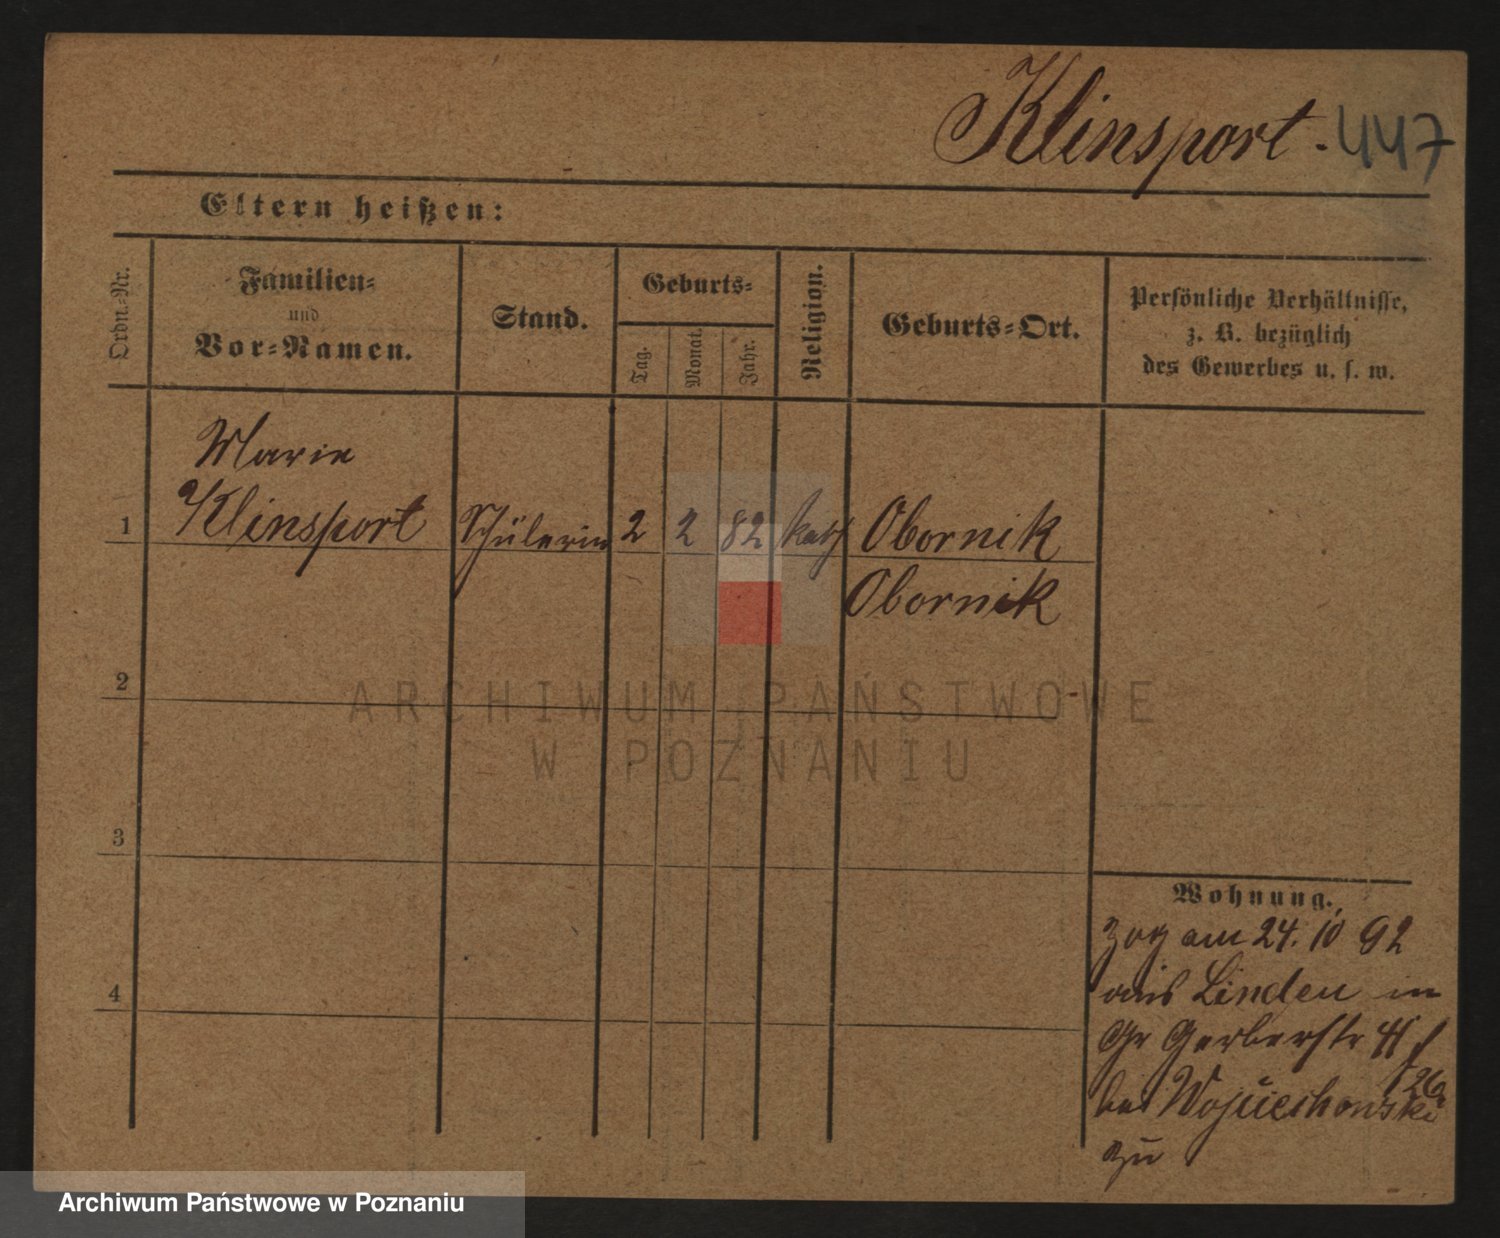 Klinsport. 447
Eltern heißen:
Ordn.=Nr.
Familien=
und
Vor=Namen.
Stand.
Geburts=
Tag.
Monat.
Jahr.
Religion.
Geburts=Ort.
Persönliche Verhältnisse,
z. B. bezüglich
des Gewerbes u. s. w.
Marie
1 Klinsport Schülerin 2 2 82 kath Obornik
Obornik
2
3
4
Wohnung.
Zog am 24. 10 92
aus Linden in
Gr Gerberstr
26
bei Wojciechowski
zu
ARCHIWUM PAŃSTWOWE
W POZNANIU
Archiwum Państwowe w Poznaniu